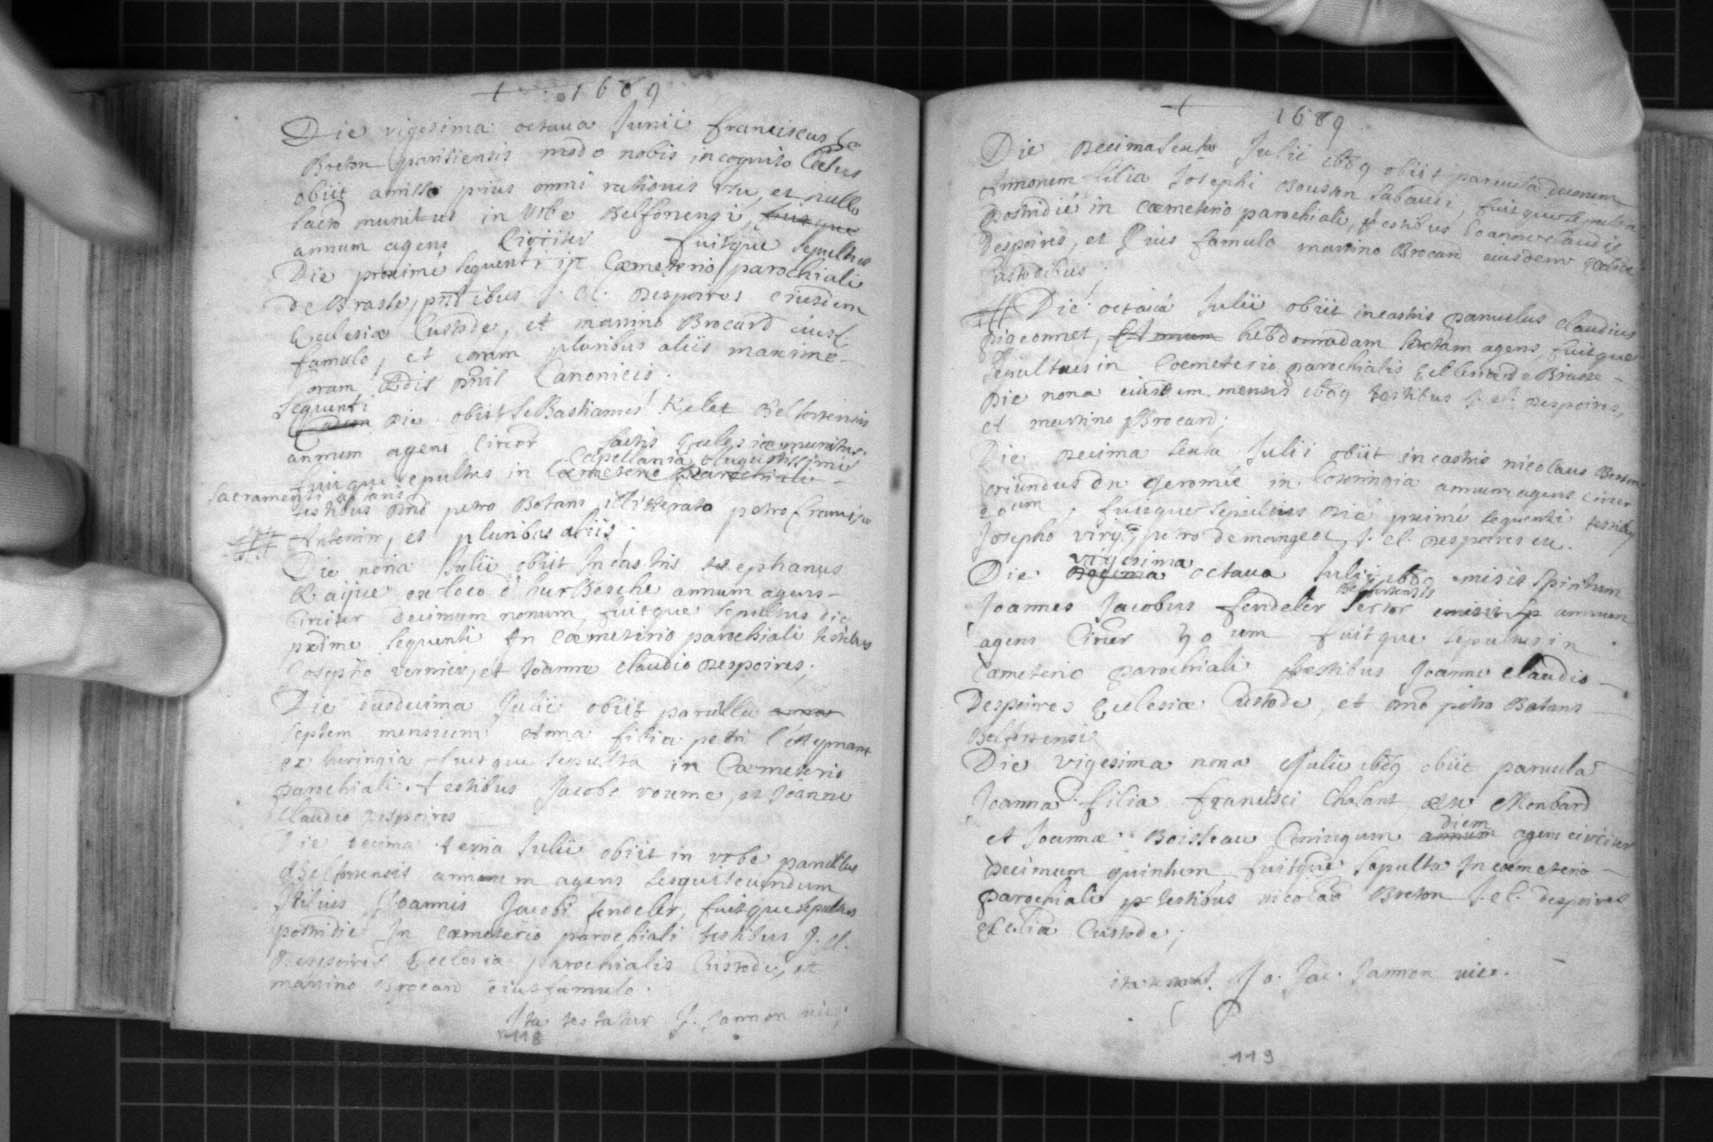 1689
Die vigesima octava Junii franciscus Le
Breton parisiensis modo nobis incognito Casus
obiit amisso prius omni rationis usu, et nullo
sacro munitus in Urbe Belfortensi, fuitque
annum agens Circiter fuitque sepultus
Die proximé sequenti in Cœmeterio parochiali
de Brasse, pntibus J. Cl. Despoires eiusdem
Ecclesiæ Custode, et martino Brocard eius
famulo, et coram pluribus aliis maxime
coram Canonicis.
sequenti
Die obiit seBastianus Kelet Belfortensis
annum agens Circit sactis Eccles iæ munitus
fuitque sepultus in Capellania Augustissimi
Cœmeterio parochiali
sacramenti altaris
testibus Dnō petro Botans illitterato petro francisco
Antonin, et pluribus aliis;
Die nona Julii obiit In castris stephanus
ex loco d'hurBesche annum agens
Circiter decimum nonum, fuitque sepultus die
prōime sequenti In cœmeterio parochiali testibus
Josepho vernier, et Joanne claudio Despoires;
Die duodecima Julii obiit parvula annos
septem mensium Anna filia petri
ex turingia fuitque sepulta in Cœmeterio
parochiali. testibus Jacobo voume, et Joanne
Claudio Despoires
Die decima tertia Julii obiit in urbe parvulus
Belfortensis annum agens sesquisecundum
filius Joannis Jacobi fendeler, fuitque sepultus
postridie In cœmeterio parochiali testibus J. cl.
Despoires Ecclesiæ parochialis Custode, et
martino Brocard eius famulo.
Ita testatur J. Jannon vic;
118
1689
Die Decima sexta Julii 1689 obiit parvula duorum
Annorum filia Josephi Bouston sabaudi, fuitque sepulta
postridie in cœmeterio parochiali, testibus Joanne claudio
Despoires, et eius famulo martino Brocard eiusdem Eccliæ
custodibus.
Die octava Julii obiit in castris parvulus claudius
pigeonnet, hebdomadam sextam agens, fuitque
sepultus in Cœmeterio parochialis Ecclesiæ de Brasse
Die nona eiusdem mensis 1689 testibus J. cl. Despoires,
et martino Brocard;
Die Decima sexta Julii obiit in castris nicolaus
oriundus de Geromé in Lotoringia annum agens circiter
20um, fuitque sepultus die proximé sequenti testibus
Josepho viry, petro demangeot, J. cl. Despoires etc.
vigesima
Die octava Julii 1689 emisit spiritum
Belfortensis
Joannes Jacobus fendeler sector emisit sp annum
agens Circiter 40 um fuitque sepultus in
Cœmeterio parochiali testibus Joanne claudio
Despoires Ecclesiæ Custode, et Dnō petro Botans
Belfortensi
Die vigesima nona Julii 1689 obiit parvula
Joanna filia francisci Chalant de Monbard
et Joannæ Boisseau Coniugum
diem
annum agens circiter
Decimum quintum fuitque sepulta In cœmeterio
parochiali testibus nicolao Breton J. cl. despoires
Eccliæ Custode;
ita test. Jo. Jac. Jannon vice.
119